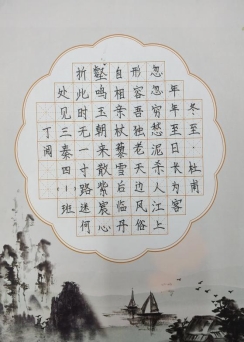 冬至·杜甫
年年至日长为客
忽忽穷愁泥杀人江上
形容吾独老天边风俗
自相亲杖藜雪后临丹
壑鸣玉朝来散紫宸心
折此时无一寸路迷何
处见三秦四一班
丁